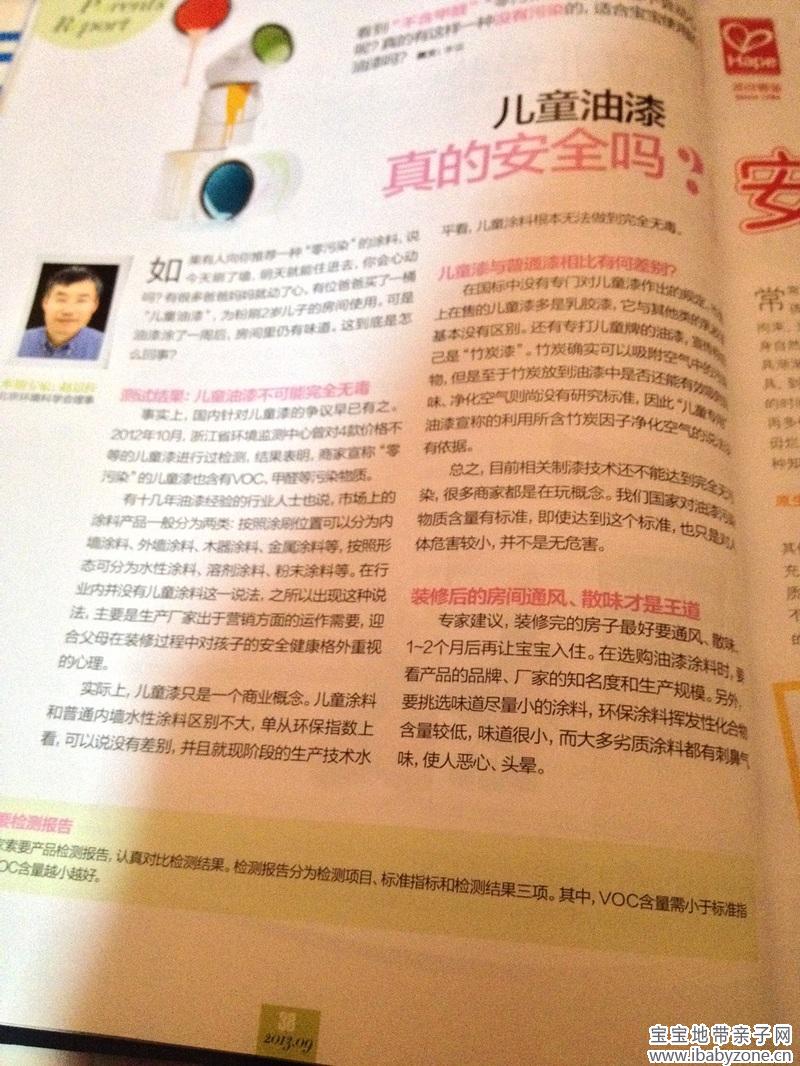 Parents
Report
看到“不含甲醛”“零
呢？真的有这样一种没有污染的，适合宝宝使用的
油漆吗？
Hape
儿童油漆
真的安全吗？
安
如
果有人向你推荐一种“零污染”的涂料，说
今天刷了墙，明天就能住进去，你会心动
吗？有很多爸爸妈妈就动了心，有位爸爸买了一桶
“儿童油漆”，为粉刷2岁儿子的房间使用，可是
油漆涂了一周后，房间里仍有味道。这到底是怎
么回事？
北京环境科学会理事
测试结果：儿童油漆不可能完全无毒
事实上，国内针对儿童漆的争议早已有之。
2012年10月，浙江省环境监测中心曾对4款价格不
等的儿童漆进行过检测，结果表明，商家宣称“零
污染”的儿童漆也含有VOC、甲醛等污染物质。
有十几年油漆经验的行业人士也说，市场上的
涂料产品一般分为两类：按照涂刷位置可以分为内
墙涂料、外墙涂料、木器涂料、金属涂料等，按照形
态可分为水性涂料、溶剂涂料、粉末涂料等。在行
业内并没有儿童涂料这一说法，之所以出现这种说
法，主要是生产厂家出于营销方面的运作需要，迎
合父母在装修过程中对孩子的安全健康格外重视
的心理。
实际上，儿童漆只是一个商业概念。儿童涂料
和普通内墙水性涂料区别不大，单从环保指数上
看，可以说没有差别，并且就现阶段的生产技术水
平看，儿童涂料根本无法做到完全无毒。
儿童漆与普通漆相比有何差别？
在国标中没有专门对儿童漆作出的规定，
上在售的儿童漆多是乳胶漆，它与其他类的乳胶
基本没有区别。还有专打儿童牌的油漆，宣传
己是“竹炭漆”。竹炭确实可以吸附空气中的污
物，但是至于竹炭放到油漆中是否还能有效吸
味、净化空气则尚没有研究标准，因此“儿童专
油漆宣称的利用所含竹炭因子净化空气的说法
有依据。
总之，目前相关制漆技术还不能达到完全无
染，很多商家都是在玩概念。我们国家对油漆污
物质含量有标准，即使达到这个标准，也只是对人
体危害较小，并不是无危害。
装修后的房间通风、散味才是王道
专家建议，装修完的房子最好要通风、散味，
1~2个月后再让宝宝入住。在选购油漆涂料时，要
看产品的品牌、厂家的知名度和生产规模。另外，
要挑选味道尽量小的涂料，环保涂料挥发性化合物
含量较低，味道很小，而大多劣质涂料都有刺鼻气
味，使人恶心、头晕。
要检测报告
家索要产品检测报告，认真对比检测结果。检测报告分为检测项目、标准指标和检测结果三项。其中，VOC含量需小于标准指
OC含量越小越好。
常
2013.09
宝宝地带亲子网
www.ibabyzone.cn